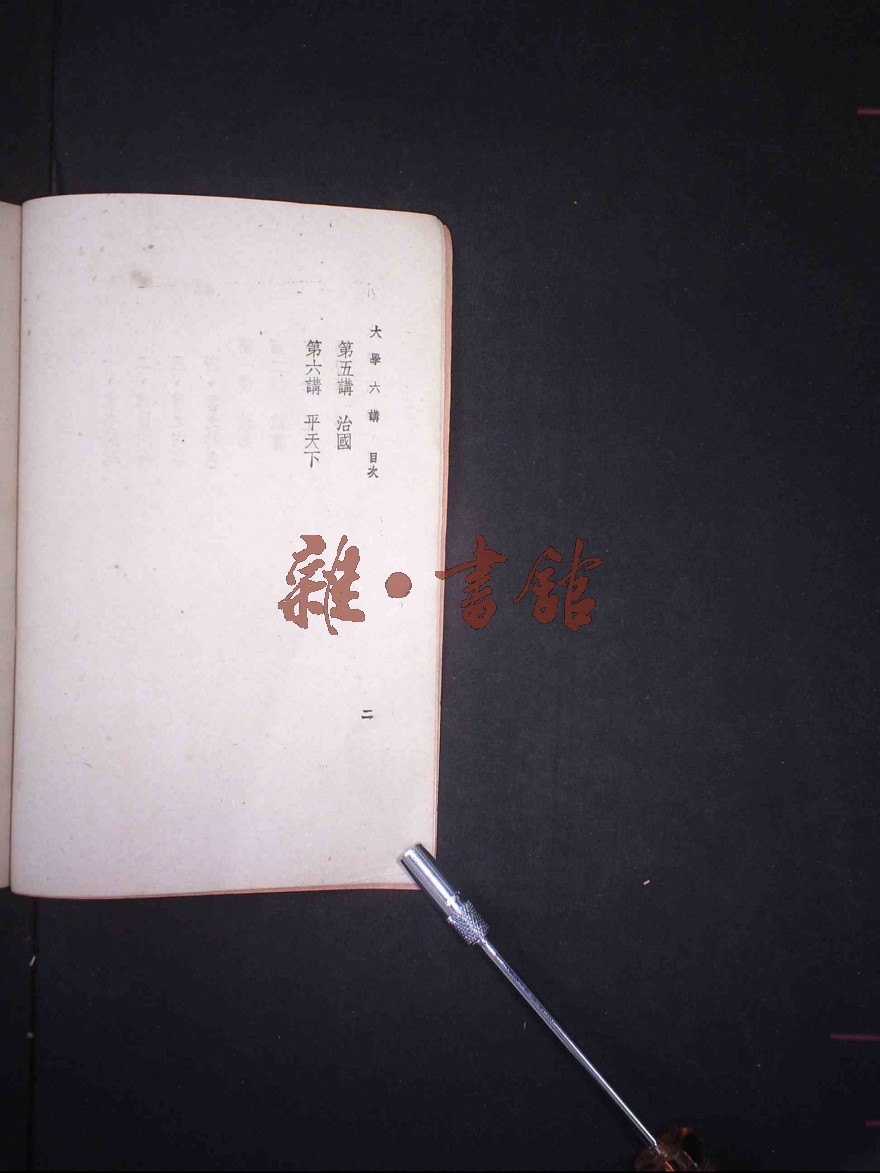 大學六講 目次
第五講 治國
第六講 平天下
二
雜·書館